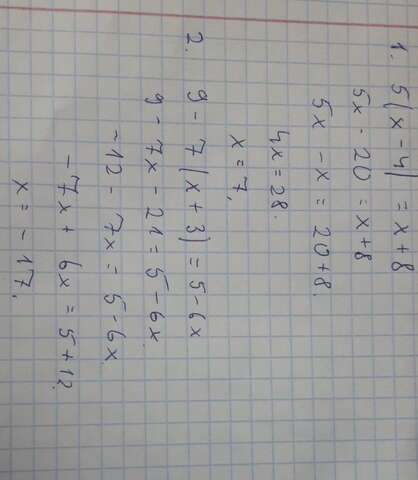 1. 5(x - 4) = x + 8
5x - 20 = x + 8
5x - x = 20 + 8.
4x = 28.
x = 7.
2. 9 - 7(x + 3) = 5 - 6x
9 - 7x - 21 = 5 - 6x
-12 - 7x = 5 - 6x
-7x + 6x = 5 + 12
x = -17.